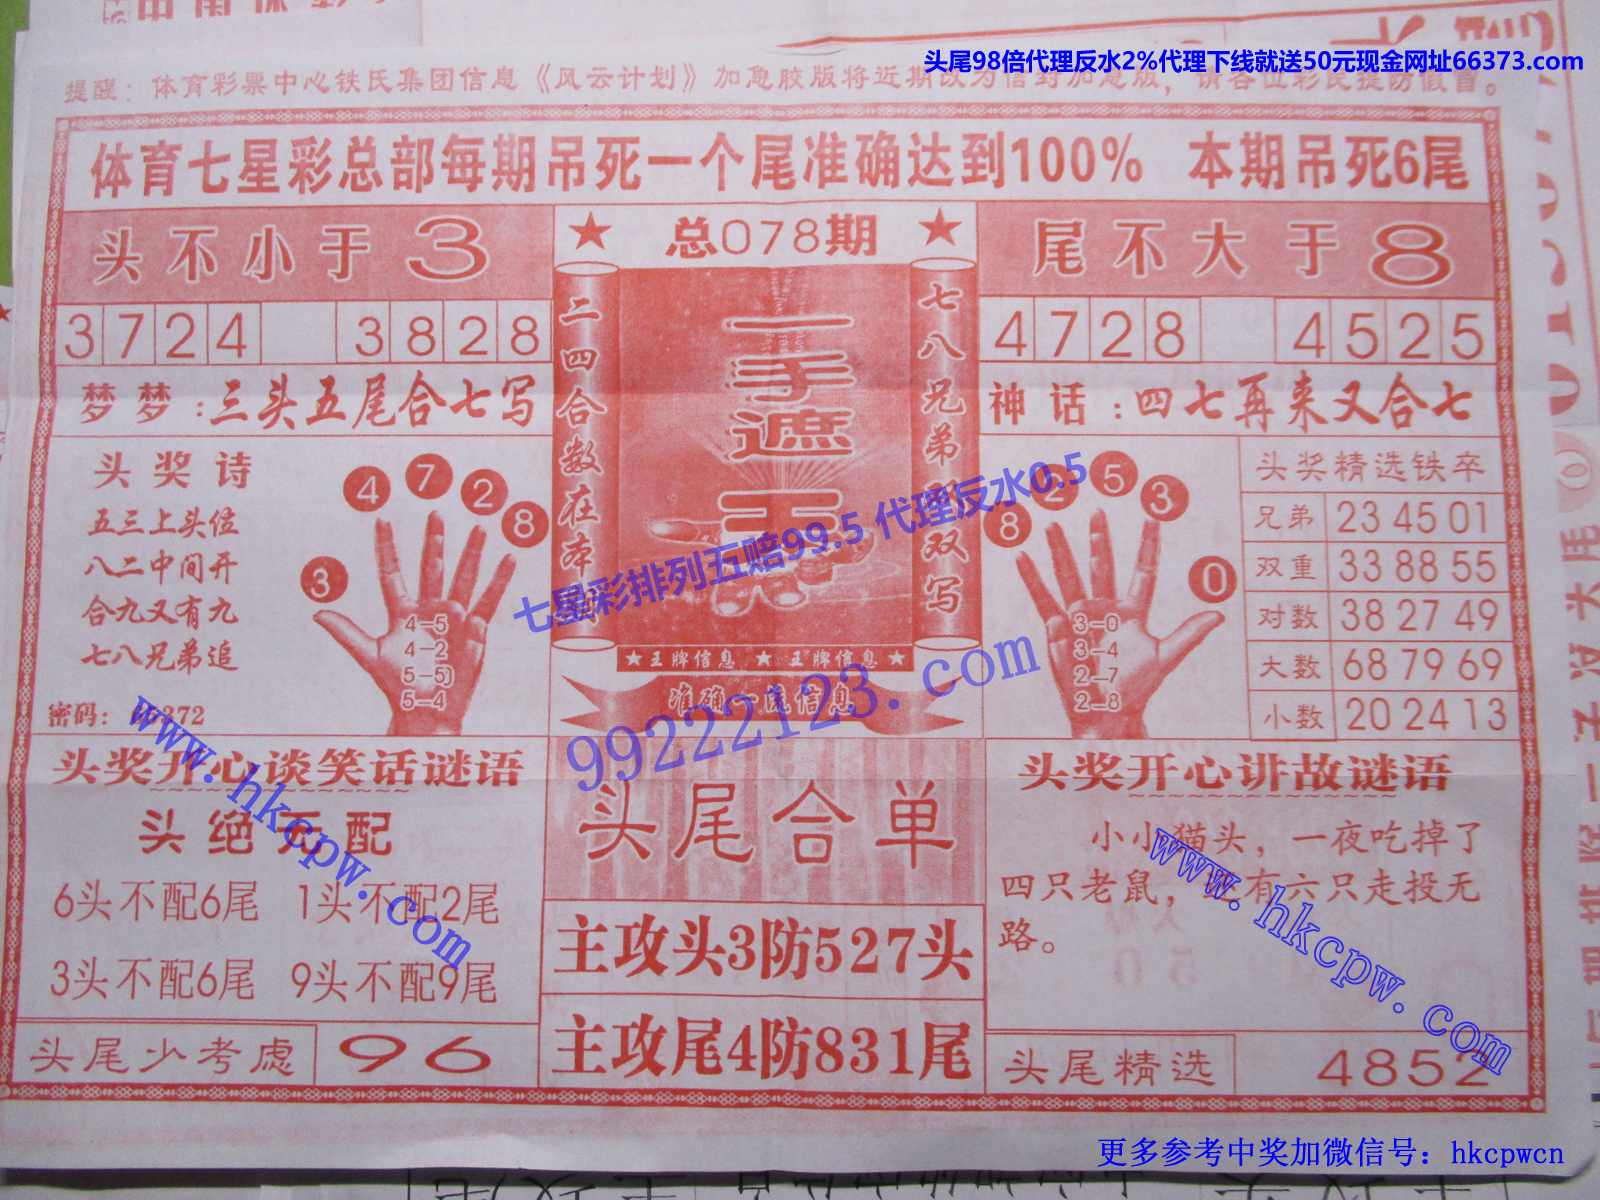 头尾98倍代理反水2%代理下线就送50元现金网址66373.com
提醒：体育彩票中心铁氏集团信息《风云计划》加急胶版将近期改为信封加急版，请各位彩民提防假冒。
体育七星彩总部每期吊死一个尾准确达到100% 本期吊死6尾
头不小于3
★ 总078期 ★
尾不大于8
3724 3828
4728 4525
二四合数在本
一手遮天
七八兄弟 双写
梦梦：三头五尾合七写
神话：四七再来又合七
头奖诗
五三上头位
八二中间开
合九又有九
七八兄弟追
3 4 7 2 8
4-5
4-2
5-5
5-4
密码： 372
七星彩排列五赔99.5 代理反水0.5
★王牌信息 ★ 王牌信息★
准确一流信息
8 2 5 3 0
3-0
3-4
2-7
2-8
头奖精选铁卒
兄弟 23 45 01
双重 33 88 55
对数 38 27 49
大数 68 79 69
小数 20 24 13
99222123.com
www.hkcpw.com
头奖开心谈笑话谜语
头绝无配
6头不配6尾 1头不配2尾
3头不配6尾 9头不配9尾
头尾少考虑 96
头尾合单
主攻头3防527头
主攻尾4防831尾
头奖开心讲故谜语
小小猫头，一夜吃掉了
四只老鼠，还有六只走投无
路。
www.hkcpw.com
头尾精选 4852
更多参考中奖加微信号：hkcpwcn